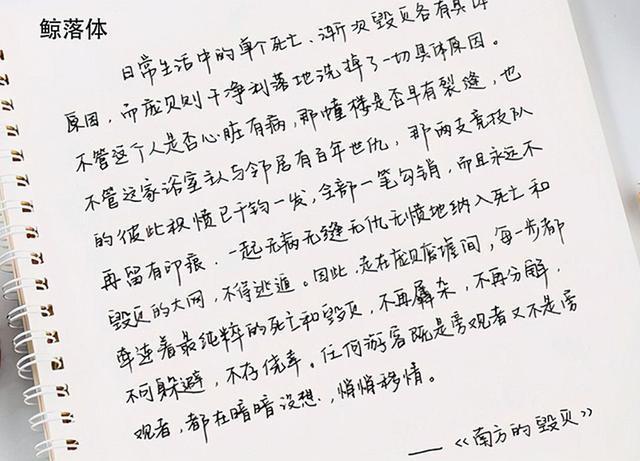 鲸落体
日常生活中的单个死亡、渐次毁灭各有具体
原因，而庞贝则干净利落地洗掉了一切具体原因。
不管这个人是否心脏有病，那幢楼是否早有裂缝，也
不管这家浴室主人与邻居有百年世仇，那两支竞技队
的彼此积愤已千钧一发，全部一笔勾销，而且永远不
再留有印痕．一起无病无缝无仇无愤地纳入死亡和
毁灭的大网，不得逃遁。因此，走在庞贝废墟间，每一步都
牵连着最纯粹的死亡和毁灭，不再羼杂，不再分解，
不可躲避，不存侥幸。任何游客既是旁观者又不是旁
观者，都在暗暗设想，悄悄移情。
——《南方的毁灭》